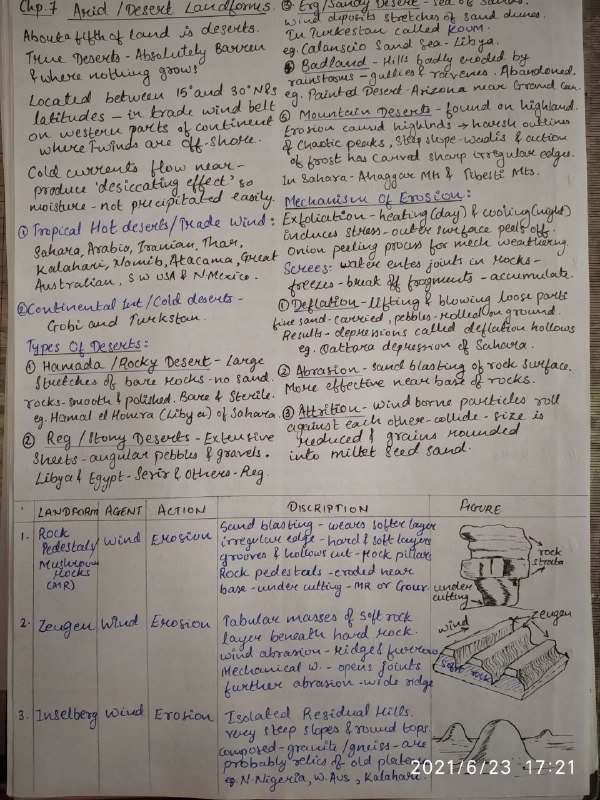 Chp.7 Arid/Desert Landforms.
About a fifth of land is deserts.
True Deserts - Absolutely Barren
& where nothing grows
Located between 15° and 30° N&S
latitudes - in trade wind belt
on western parts of continent
where Twinds are off-shore.
Cold currents flow near -
produce 'desiccating effect' so
moisture - not precipitated easily.
① Tropical Hot deserts/Trade Wind:
Sahara, Arabia, Iranian, Thar,
Kalahari, Namib, Atacama, Great
Australian, S W USA & N Mexico.
② Continental Int/Cold deserts -
Gobi and Turkstan.
Types Of Deserts:
① Hamada/Rocky Desert - Large
stretches of bare rocks - no sand.
rocks - smooth & polished. Bare & Sterile.
eg. Hamal el Homra (Libya) of Sahara.
② Reg/Stony Deserts - Extensive
Sheets - angular pebbles & gravels.
Libya & Egypt - Serir & Others - Reg.
③ Erg/Sandy Desert - Sea of sands.
wind deposits stretches of sand dunes.
In Turkestan called KOUM.
eg. Calanscio Sand Sea - Libya.
④ Badland - Hills badly eroded by
rainstorms - gullies & ravenes. Abandoned.
eg. Painted Desert - Arizona near Grand Can.
⑤ Mountain Deserts - found on highland.
Erosion caused highlnds → harsh outlines
of Chaotic peaks, Steep slope - Wadis & action
of frost has carved sharp irregular edges.
In Sahara - Ahaggar Mts & Tibesti Mts.
Mechanism Of Erosion:
Exfoliation - heating (day) & cooling (night)
induces stress - outer surface peels off.
Onion peeling process for mech weathering.
Screes: water enters joints in rocks -
freezes - break off fragments - accumulate.
① Deflation - lifting & blowing loose parti
fine sand - carried, pebbles - rolled on ground.
Results - depressions called deflation hollows
eg. Qattara depression of Sahara.
② Abrasion - sand blasting of rock surface.
More effective near base of rocks.
③ Attrition - wind borne particles roll
against each other - collide - size is
reduced & grains rounded
into millet seed sand.
LANDFORM AGENT ACTION DISCRIPTION FIGURE
1. Rock Pedestals/ Mushroom Rocks (MR) Wind Erosion
Sand blasting - wears softer layer
irregular edge - hard & soft layers
grooves & hollows cut - Rock pillars
Rock pedestals - eroded near
base - under cutting - MR or Gour.
rock strata
under cutting
2. Zeugen Wind Erosion
Tabular masses of soft rock
layer beneath hard rock.
wind abrasion - Ridge & furrow
Mechanical W. - opens joints
further abrasion - wide ridge
wind
Zeugen
soft rock
3. Inselberg Wind Erosion
Isolated Residual Hills.
very steep slopes & round tops.
composed - granite/gneiss - are
probably relics of old plateau
eg. N. Nigeria, W. Aus, Kalahari.
2021/6/23 17:21